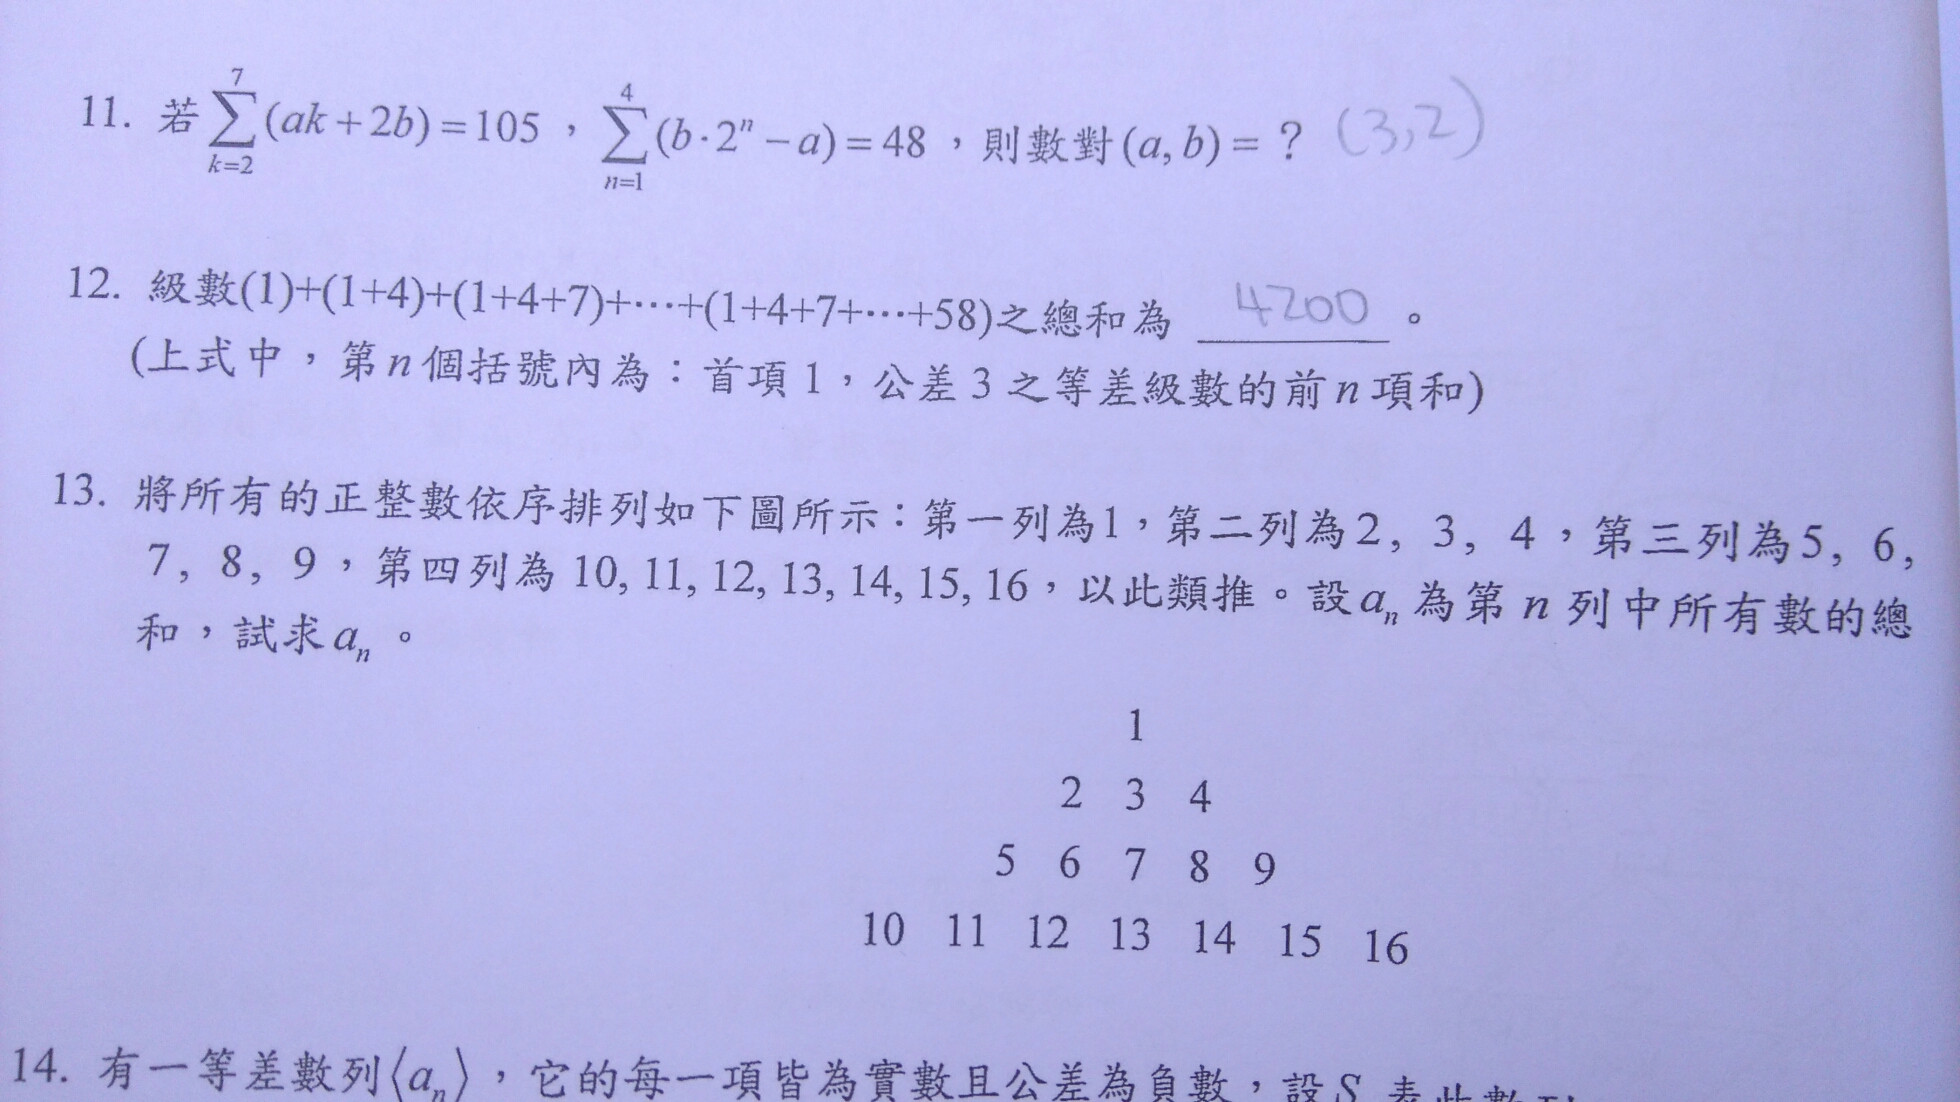 11. 若∑_{k=2}^{7}(ak+2b)=105，∑_{n=1}^{4}(b·2ⁿ−a)=48，則數對(a, b)=？ (3,2)
12. 級數(1)+(1+4)+(1+4+7)+⋯+(1+4+7+⋯+58)之總和為 4200 。
(上式中，第n個括號內為：首項1，公差3之等差級數的前n項和)
13. 將所有的正整數依序排列如下圖所示：第一列為1，第二列為2, 3, 4，第三列為5, 6,
7, 8, 9，第四列為 10, 11, 12, 13, 14, 15, 16，以此類推。設aₙ為第 n 列中所有數的總
和，試求aₙ。
1
2 3 4
5 6 7 8 9
10 11 12 13 14 15 16
14. 有一等差數列⟨aₙ⟩，它的每一項皆為實數且公差為負數，設S 表此數列